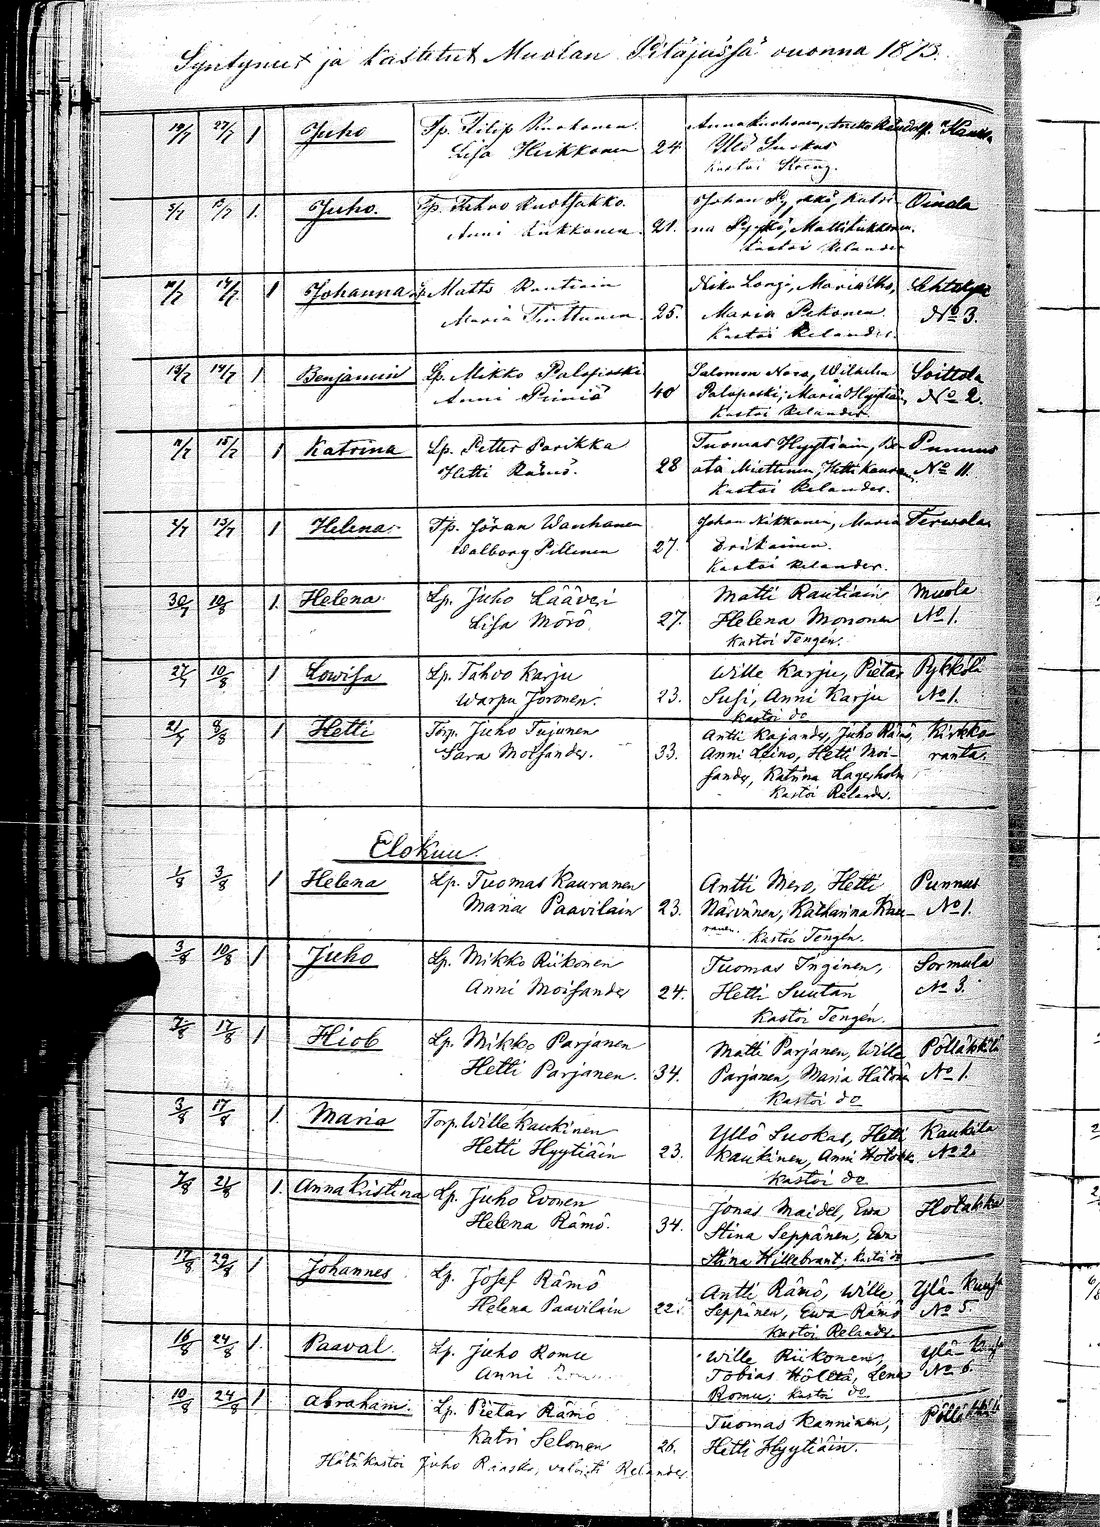 Syntyneet ja kastetut Muolan Pitäjässä vuonna 1873.
19/7 27/7 1 Juho Tp. Filip Kuokonen Anna
Lisa Heikkonen 24 Ullo Suokas
Kastoi
5/7 13/7 1. Juho. Tp. Tahvo Johan Oinala
Anni Kukkonen 21. na Pyykkö, Matti Kukkonen.
Kastoi Relander
14/7 1 Johanna Matts Rautiain
Maria Tinttunen 25. Maria Pekonen No 3.
Kastoi Relander.
13/7 14/7 1. Benjamin Lp. Mikko Palapaski Salomon Nora, Wilhelm Soittola
Anni Piiniö 40 Palapaski, Maria Hyytiäin No 2.
Kastoi Relander.
11/7 15/7 1 Katrina Lp. Petter Parikka Tuomas Hyytiäin, Be- Punnus
Hetti Rämö. 28 ata Miettinen, Hetti No 11
Kastoi Relander.
13/7 1 Helena. Tp. Jöran Wanhanen Johan Nikkanen, Maria Terwola
Walborg Pillinen 27. Erikainen.
Kastoi Relander.
30/7 10/8 1. Helena. Lp. Juho Lääveri Matti Rautiain Muola
Lisa Mörö. 27. Helena Mononen No 1.
Kastoi Tengén.
27/7 10/8 1 Lowisa Lp. Tahvo Karju Wille Karju, Pietar Pykkölä
Warpu Joronen. 23. Susi, Anni Karju No 1.
Kastoi do
21/7 8/8 1 Hetti Torp. Juho Tujunen Antti Kajander, Juho Rämö, Kirkko-
Sara Moisander. 33. Anni Leino, Hetti Moi- ranta.
sander, Katrina Lagerholm
Kastoi Relander.
Elokuu.
1/8 3/8 1 Helena Lp. Tuomas Kauranen Antti Mero, Hetti Punnus
Maria Paavilain 23. Närvänen, Katharina Kau- No 1.
ranen. Kastoi Tengén.
3/8 10/8 1 Juho Lp. Mikko Riikonen Tuomas Inginen, Sormula
Anni Moisander 24. Hetti Suutari No 3.
Kastoi Tengén.
7/8 17/8 1 Hiob Lp. Mikko Parjanen Matti Parjanen, Wille Pölläkkälä
Hetti Parjanen. 34. Parjanen, Maria No 1.
Kastoi do
3/8 17/8 1. Maria Torp. Wille Kaukinen Yllö Suokas, Hetti Kaukila
Hetti Hyytiäin 23. Kaukinen, Anni No 2.
Kastoi do
7/8 21/8 1. Anna Kristina Lp. Juho Evonen Jonas Maidel, Ewa Hotakka
Helena Rämö. 34. Stina Seppänen, Ewa
Stina Hillebrant; Kastoi do
17/8 29/8 1 Johannes Lp. Josef Rämö Antti Rämö, Wille Ylä-
Helena Paavilain 22. Seppänen, Ewa Rämö No 5.
Kastoi Relander.
16/8 24/8 1. Paaval. Lp. Juho Romu Wille Riikonen, Ylä-
Anni Tobias Hölttä, Lena No 6.
Romu; Kastoi do
10/8 24/8 1. Abraham. Lp. Pietar Rämö Tuomas Kanninen, Pölläkkälä
Katri Selonen 26. Hetti Hyytiäin.
Hätäkastoi Juho Rinsko, vahvisti Relander.